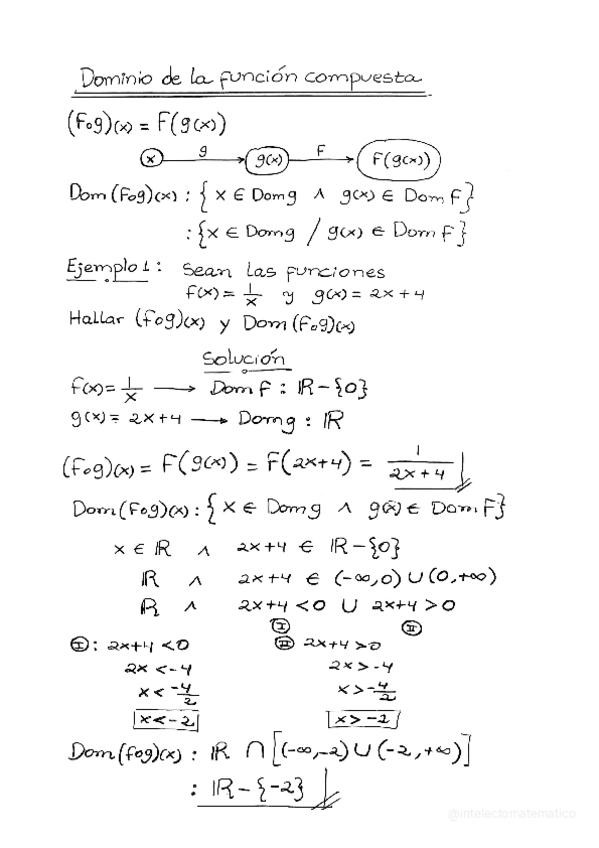 Dominio de la función compuesta
(Fog)(x) = F(g(x))
x g g(x) F F(g(x))
Dom(Fog)(x) : { x ∈ Domg ∧ g(x) ∈ Dom F }
: { x ∈ Domg / g(x) ∈ Dom F }
Ejemplo 1 : Sean las funciones
f(x) = 1/x y g(x) = 2x + 4
Hallar (fog)(x) y Dom(Fog)(x)
Solución
f(x) = 1/x → Dom f : ℝ - {0}
g(x) = 2x + 4 → Domg : ℝ
(fog)(x) = F(g(x)) = F(2x+4) = 1/(2x + 4)
Dom(Fog)(x) : { x ∈ Domg ∧ g(x) ∈ Dom. F }
x ∈ ℝ ∧ 2x+4 ∈ ℝ - {0}
ℝ ∧ 2x+4 ∈ (-∞,0) ∪ (0,+∞)
ℝ ∧ 2x+4 < 0 ∪ 2x+4 > 0
Ⓘ Ⓘⓘ
Ⓘ : 2x+4 < 0 Ⓘⓘ 2x+4 > 0
2x < -4 2x > -4
x < -4/2 x > -4/2
x < -2 x > -2
Dom(fog)(x) : ℝ ∩ [(-∞,-2) ∪ (-2,+∞)]
: ℝ - {-2}
@intelectomatematico